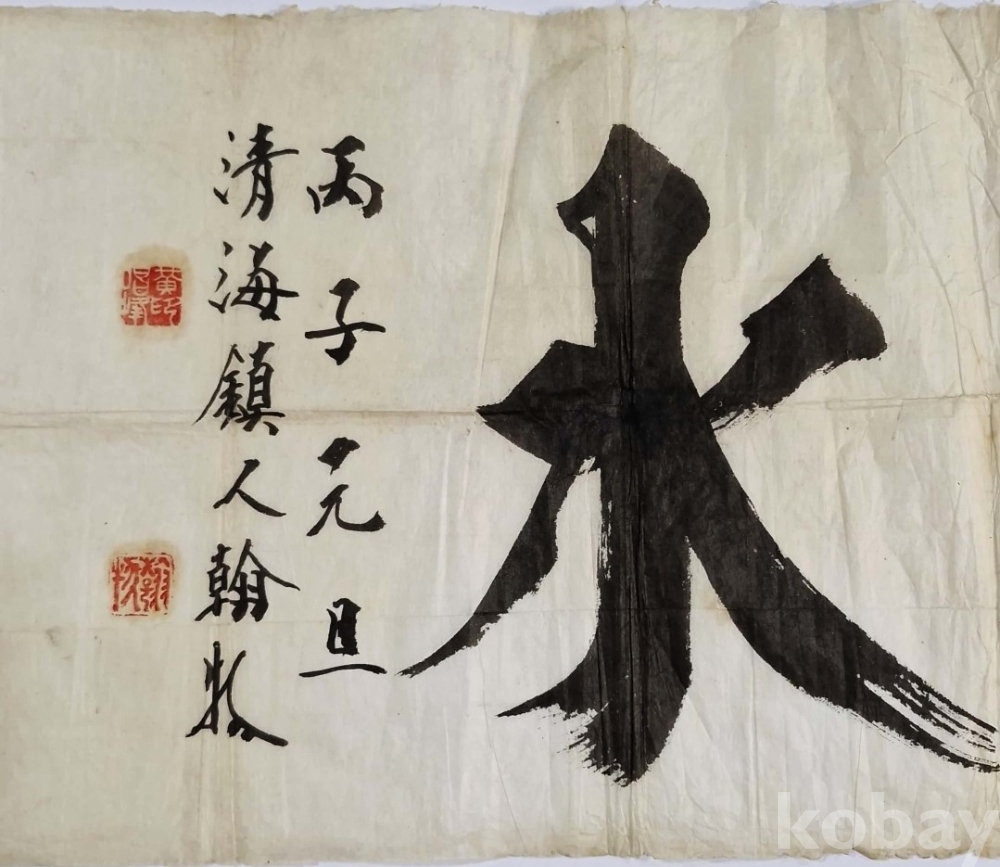 水
丙子元旦
清海鎮人翰牧
kobay